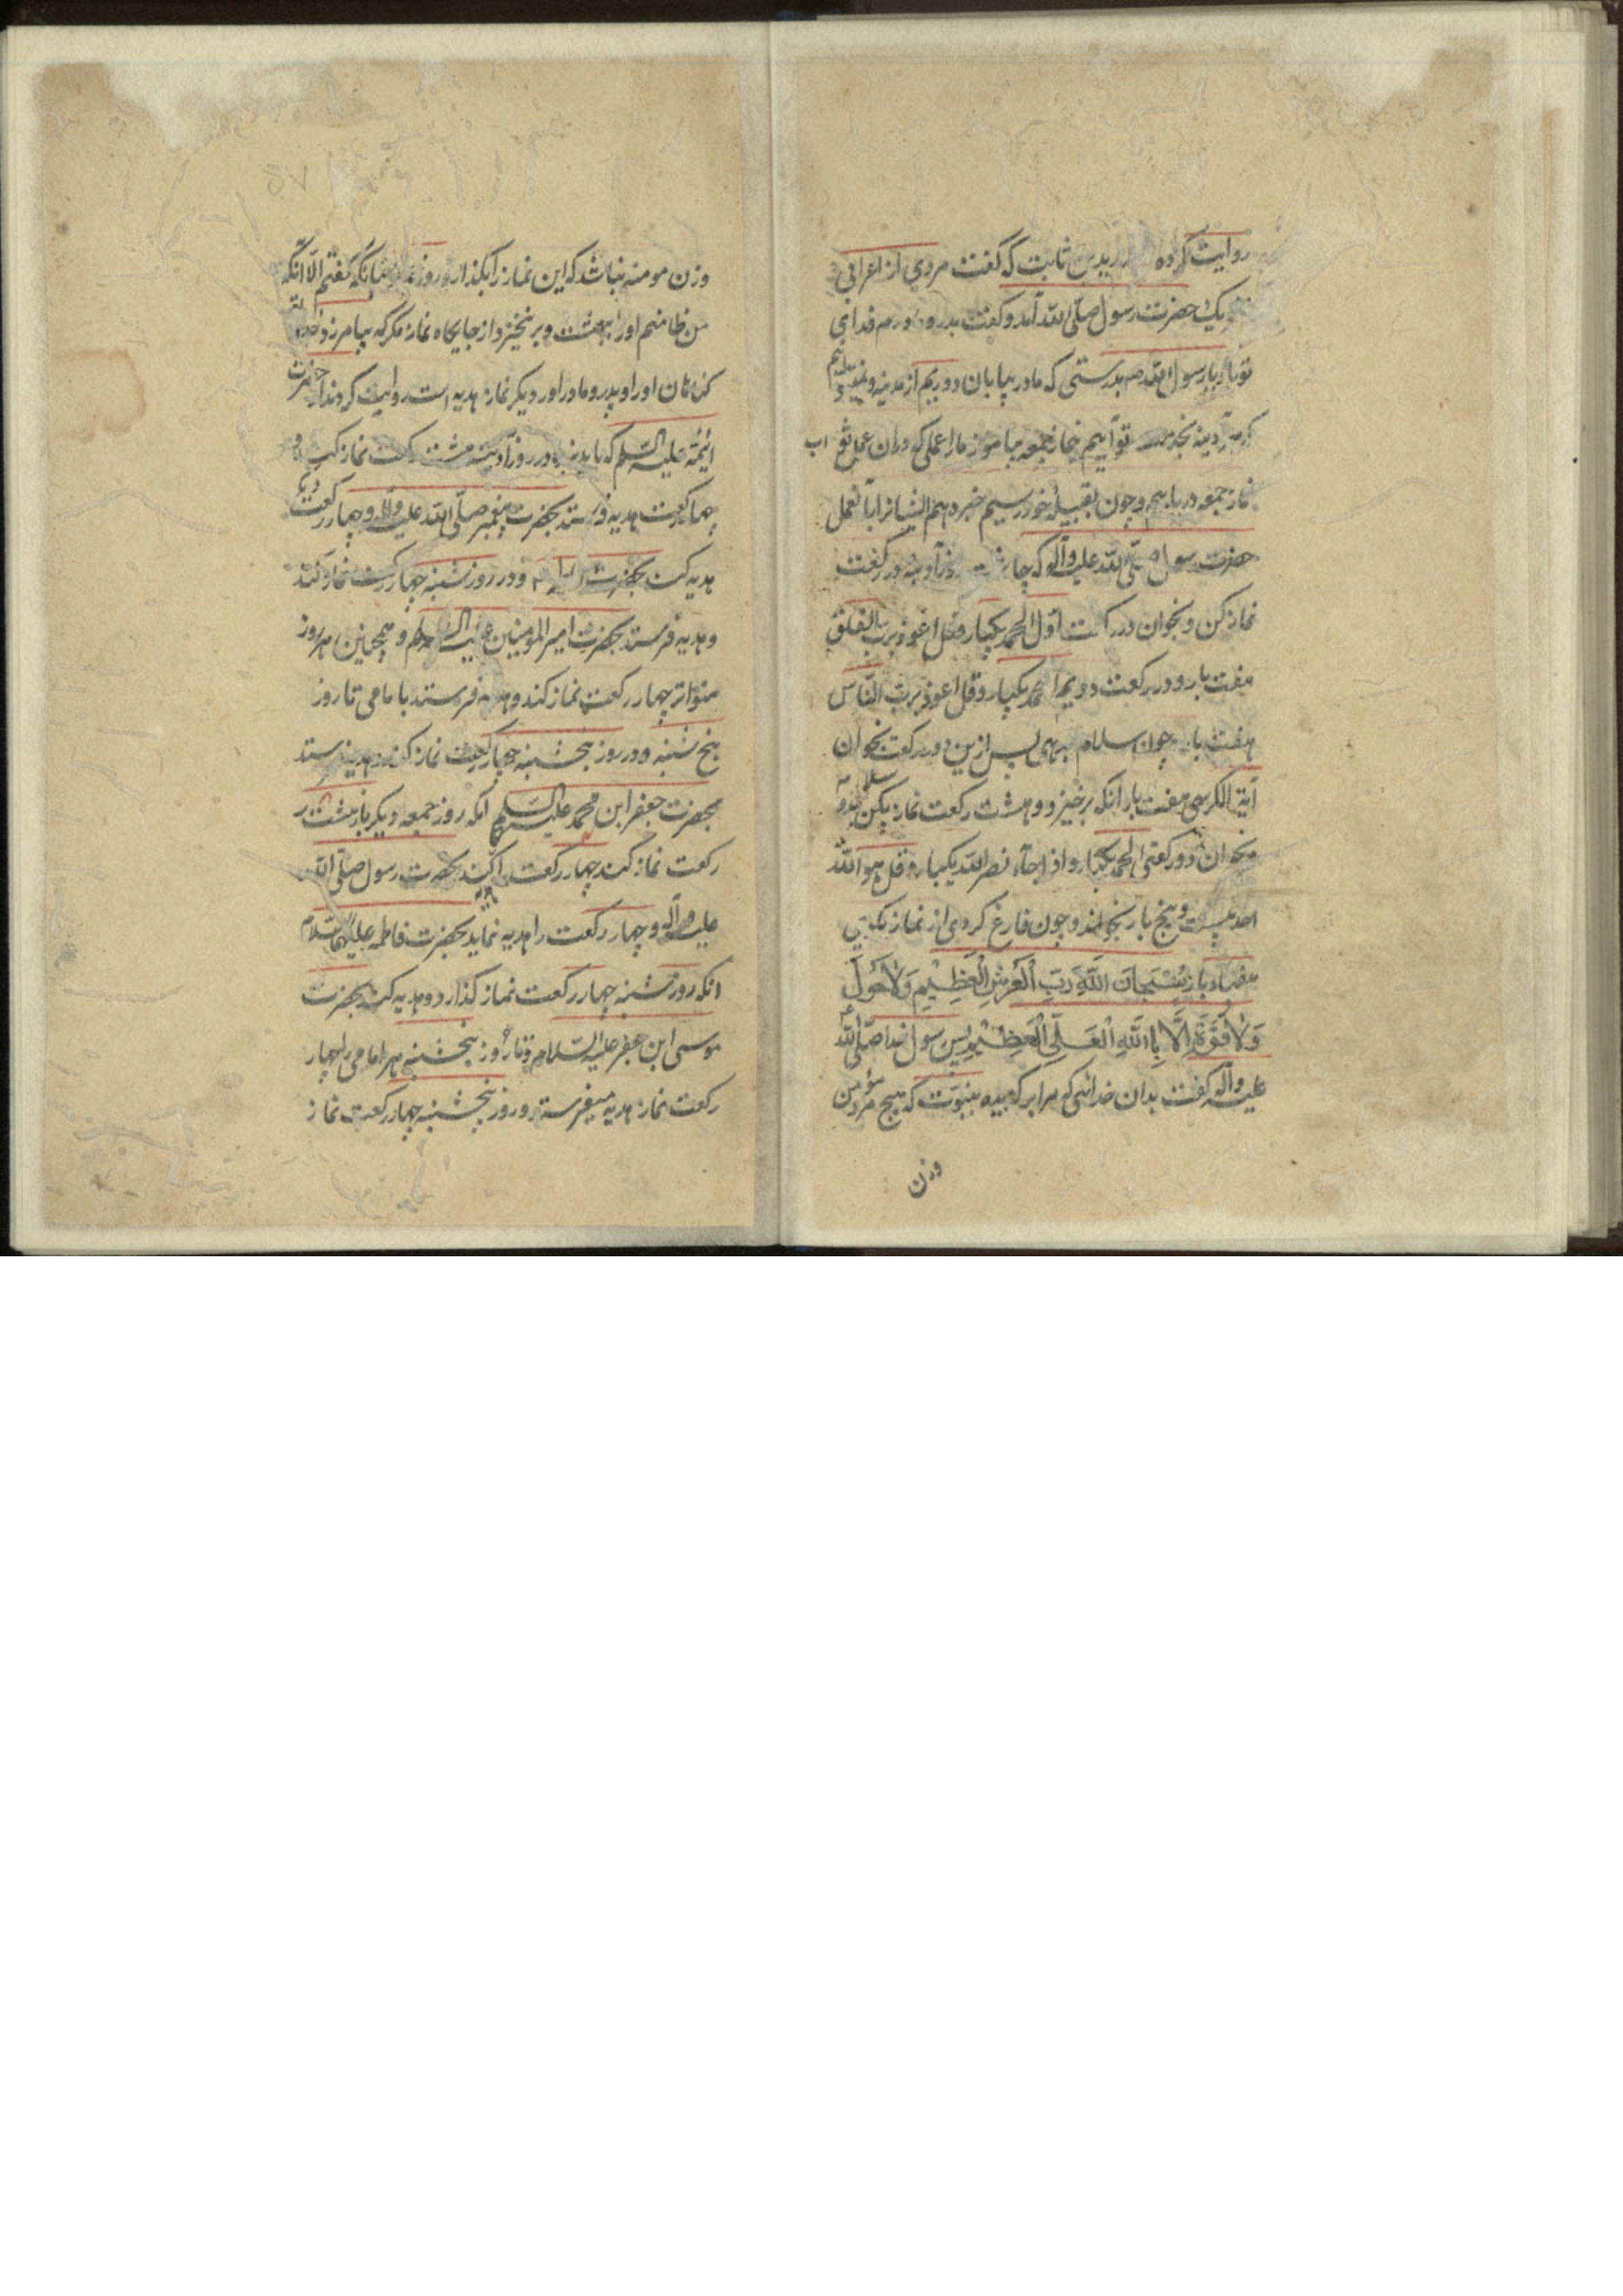 روایت کرده زید بن ثابت که گفت مردی از اعرابی
حضرت رسول صلی الله آمد و گفت پدر و مادرم فدای
تو باد یا رسول الله بدرستی که ما در بیابان دوریم از مدینه و
بخدمت تو آییم نماز جمعه بیاموز ما را عملی که در آن عمل ثواب
نماز جمعه دریابیم و چون بقبیلهٔ خود رسیم خبر دهم ایشانرا باآنعمل
حضرت رسول صلی الله علیه وآله که آدینه در رکعت
نماز کن و بخوان در رکعت اول الحمد یکبار و قل اعوذ برب الفلق
هفت بار و در رکعت دویم الحمد یکبار و قل اعوذ برب النّاس
هفت بار چون سلام بدهی پس ازین دو رکعت بخوان
آیة الکرسی هفت بار انکه برخیز و هشت رکعت نماز بکن بدو سلام
بخوان در رکعتی الحمد یکبار و اذا جآء نصر الله یکبار و قل هو الله
احد بیست و پنج بار بخوانند و چون فارغ کردی از نماز بگویی
هفتاد بار سُبْحَانَ اللّهِ رَبِّ الْعَرْشِ الْعَظِیمِ وَلَاحَوْلَ
وَلَاقُوَّةَ اِلَّا بِاللّهِ الْعَلِیِّ الْعَظِیْمِ پس رسول خدا صلّی الله
علیه وآله گفت بدان خدائی که مرا برکزیده بنبوّت که هیچ مرد مؤمن
وزن
وزن مومنه نباشد که این نماز را بکذارد روز چنانکه گفتم الّا انکه
من ضامنم او را بهشت و بر نخیزد از جایکاه نماز مکر که بیامرزد خدا
کناهان او را و پدر و مادر او را دیکر نماز هدیه است روایت کردند از حضرت
ائمّه علیه السّلم که باید در روز آدینه هشت رکعت نماز کند و
چهار رکعت هدیه فرستد بحضرت پیغمبر صلّی الله علیه وآله و چهار رکعت دیکر
هدیه کند بحضرت و در روز شنبه چهار رکعت نماز کند
و هدیه فرستد بحضرت امیر المومنین علیه السلام و همچنین هر روز
متواتر چهار رکعت نماز کند و هدیه فرستد بامامی تا روز
پنج شنبه و در روز پنجشنبه چهار رکعت نماز کند و هدیه فرستد
بحضرت جعفر ابن محمد علیه السّلم انکه روز جمعه دیکر باز هشت
رکعت نماز کند چهار رکعت را هدیه کند بحضرت رسول صلّی الله
علیه وآله و چهار رکعت را هدیه نماید بحضرت فاطمه علیها السّلام
انکه روز شنبه چهار رکعت نماز کذارد و هدیه کند بحضرت
موسی ابن جعفر علیه السّلام و تا روز پنجشنبه هر امامی را چهار
رکعت نماز هدیه میفرستد و روز پنجشنبه چهار رکعت نماز